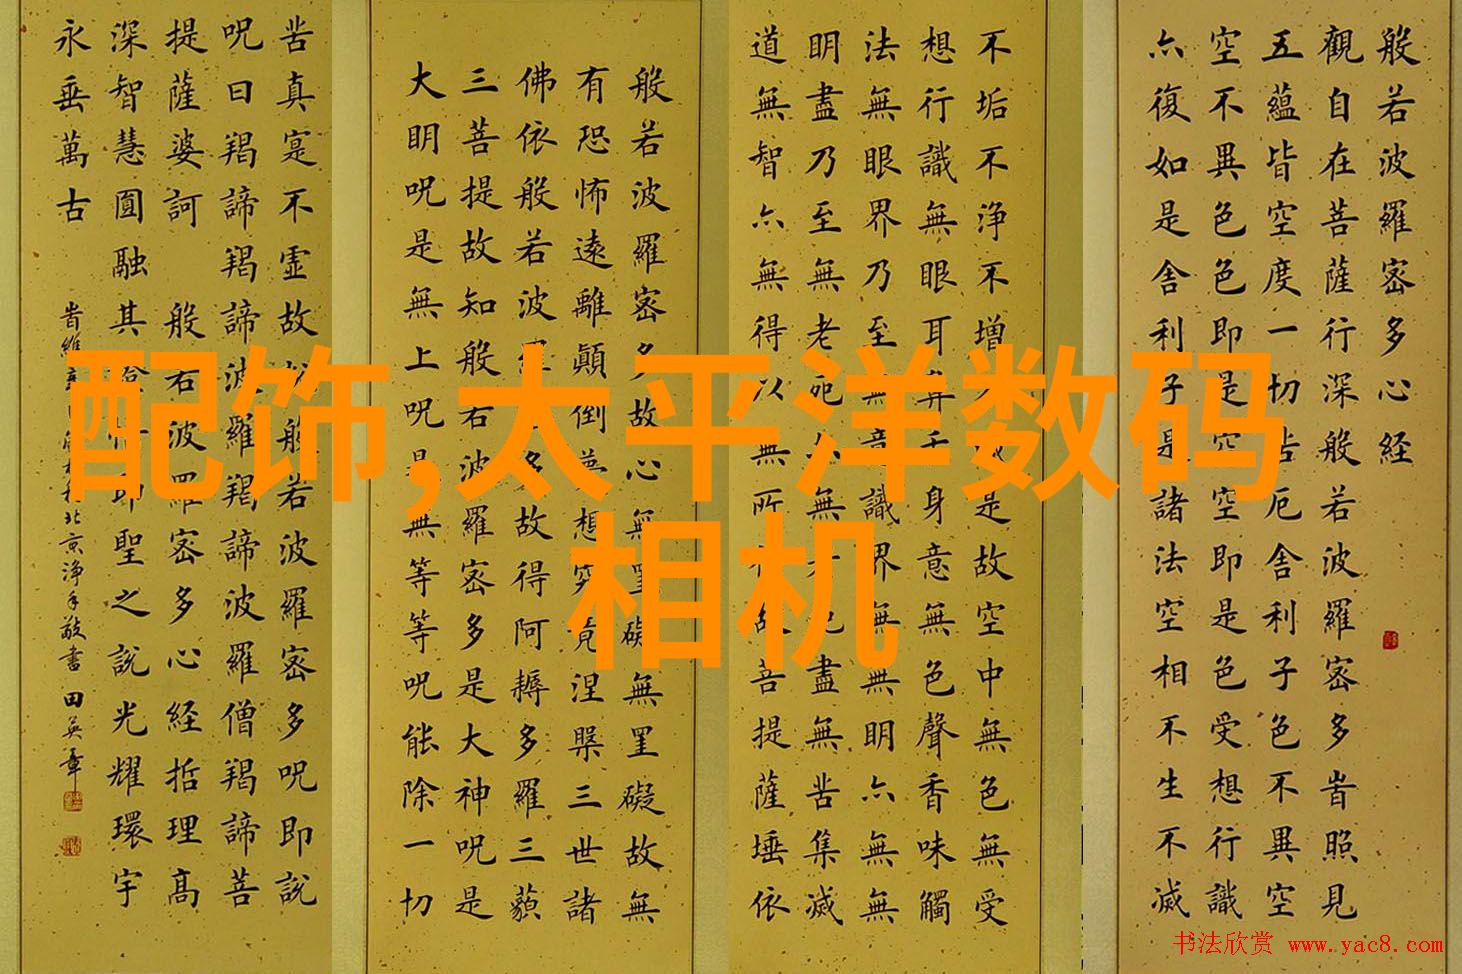 配饰,太平洋数码
相机
般若波羅密多心经
觀自在菩薩行深般若波羅密多旹照見
五蘊皆空度一切苦厄舍利子色不異空
空不異色色即是空空即是色受想行識
亦復如是舍利子是諸法空相不生不滅
不垢不浄不增不減是故空中無色無受
想行識無眼耳鼻舌身意無色聲香味觸
法無眼界乃至無意識界無無明亦無無
明盡乃至無老死亦無老死盡無苦集滅
道無智亦無得以無所得故菩提薩埵依
般若波羅密多故心無罣礙無罣礙故無
有恐怖遠離顛倒夢想究竟涅槃三世諸
佛依般若波羅密多故得阿耨多羅三藐
三菩提故知般若波羅密多是大神呪是
大明呪是無上呪是無等等呪能除一切
苦真寔不虛故說般若波羅密多呪即説
呪曰羯諦羯諦波羅羯諦波羅僧羯諦菩
提薩婆訶 般若波羅密多心经括理高
深智慧圓融其即聖之說光耀環宇
永垂萬古
旹維北京浄手敬書 田英章
书法欣赏 www.yac8.com